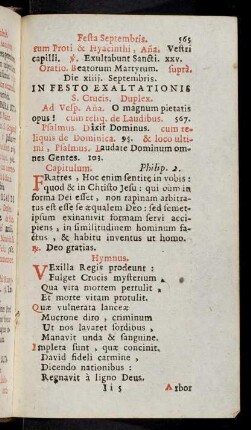 Festa Septembris. 565
rum Proti & Hyacinthi, Aña. Vestri
capilli. ℣. Exultabunt Sancti. xxv.
Oratio. Beatorum Martyrum. suprà.
Die xiiij. Septembris.
IN FESTO EXALTATIONIS
S. Crucis. Duplex.
Ad Vesp. Aña. O magnum pietatis
opus! cum reliq. de Laudibus. 567.
Psalmus Dixit Dominus. cum re-
liquis de Dominica. 95. & loco ulti-
mi, Psalmus. Laudate Dominum om-
nes Gentes. 103.
Capitulum. Philip. 2.
FRatres, Hoc enim sentite in vobis:
quod & in Christo Jesu: qui cum in
forma Dei esset, non rapinam arbitra-
tus est esse se æqualem Deo: sed semet-
ipsum exinanivit formam servi acci-
piens, in similitudinem hominum fa-
ctus, & habitu inventus ut homo.
℟. Deo gratias.
Hymnus.
VExilla Regis prodeunt:
Fulget Crucis mysterium,
Qua vita mortem pertulit,
Et morte vitam protulit.
Quæ vulnerata lanceæ
Mucrone diro, criminum
Ut nos lavaret sordibus,
Manavit unda & sanguine.
Impleta sunt, quæ concinit
David fideli carmine,
Dicendo nationibus:
Regnavit à ligno Deus.
I i 5 Arbor